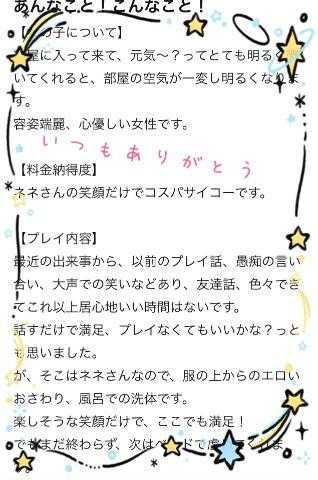 あんなこと！こんなこと！
【の子について】
屋に入って来て、元気〜？ってとても明る
いてくれると、部屋の空気が一変し明るくなりま
す。
容姿端麗、心優しい女性です。
いつもありがとう
【料金納得度】
ネネさんの笑顔だけでコスパサイコーです。
【プレイ内容】
最近の出来事から、以前のプレイ話、愚痴の言い
合い、大声での笑いなどあり、友達話、色々でき
てこれ以上居心地いい時間はないです。
話すだけで満足、プレイなくてもいいかな？っと
も思いました。
が、そこはネネさんなので、服の上からのエロい
おさわり、風呂での洗体です。
楽しそうな笑顔だけで、ここでも満足！
でもまだ終わらず、次はベッドで